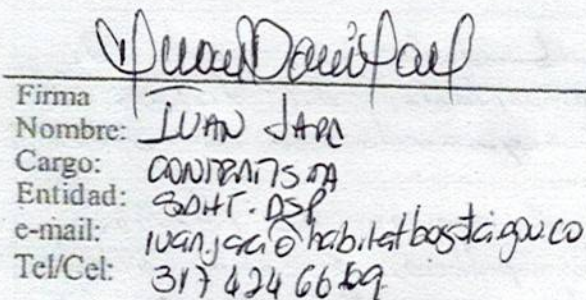 Firma
Nombre: IVAN JARA
Cargo: CONTRATISTA
Entidad: SDHT-DSP
e-mail: ivan.jara@habitatbogota.gov.co
Tel/Cel: 317 424 66 69